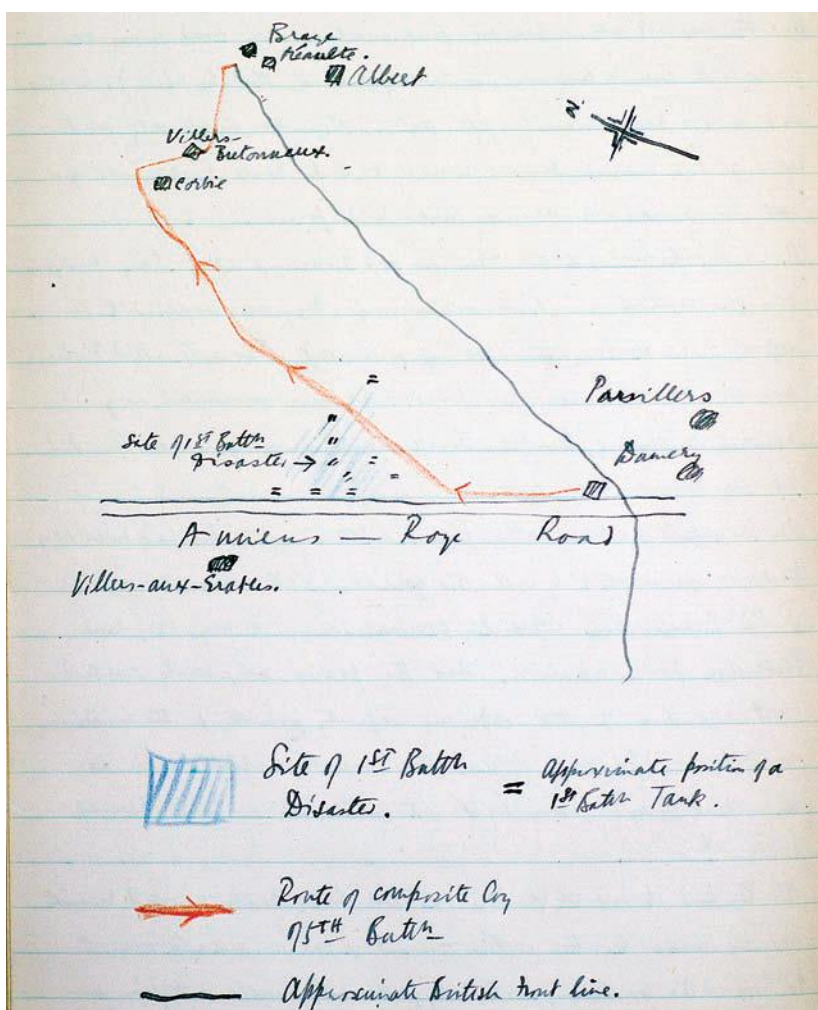 Braye
Méaulte.
Albert
N
Villers-
Bretonneaux.
Corbie
Parsillers
Damery
Site of 1ST Battn
Disaster →
Amiens — Roye Road
Villers-aux-Erables.
Site of 1ST Battn
Disaster.
= Approximate position of a
1st Battn Tank.
Route of composite Coy
of 5TH Battn
Approximate British Front line.